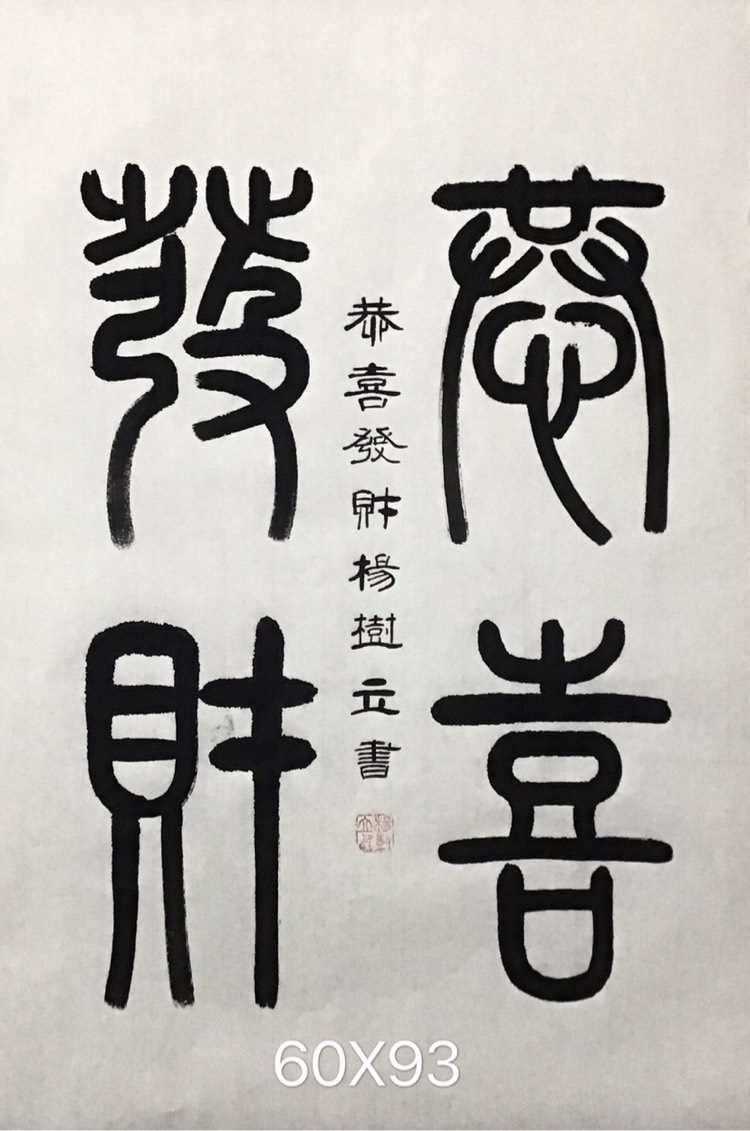 恭喜
發財
恭喜發財楊樹立書
60X93